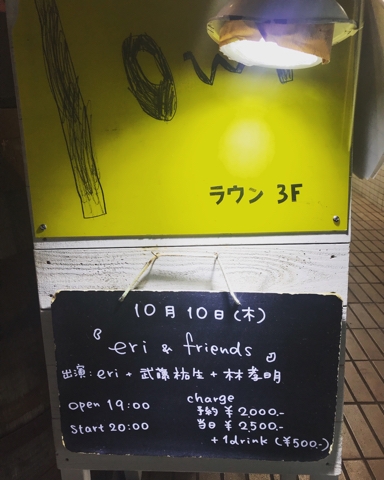 lown
ラウン 3F
10月10日(木)
『eri & friends』
出演: eri + 武藤祐生 + 林孝明
open 19:00
start 20:00
charge
予約 ¥2,000.-
当日 ¥2,500.-
+1drink (¥500.-)